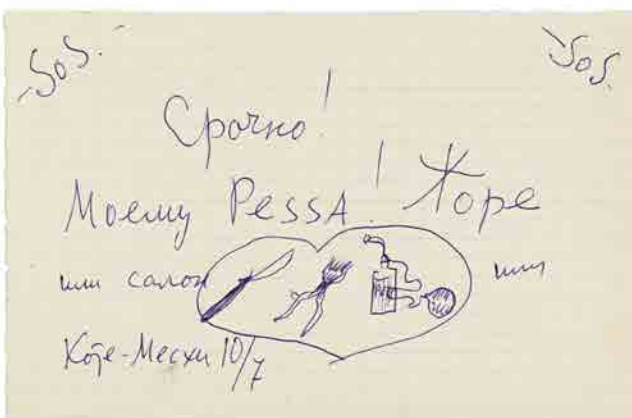 -SoS.-
SoS.
Срочно!
Моему PessA! Жоре
или салон или
Коте-Месхи 10/7